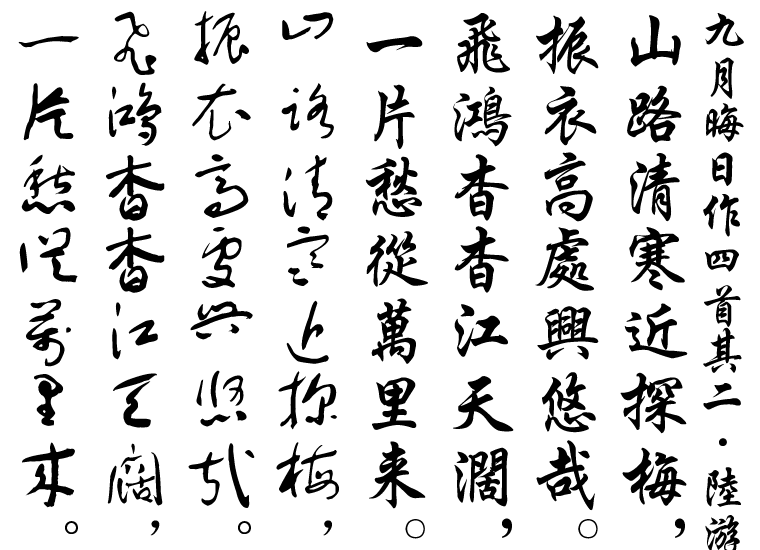 九月晦日作四首其二·陸游
山路清寒近探梅，
振衣高處興悠哉。
飛鴻杳杳江天濶，
一片愁從萬里来。
山路清寒近探梅，
振衣高處興悠哉。
飛鴻杳杳江天闊，
一片愁從萬里来。